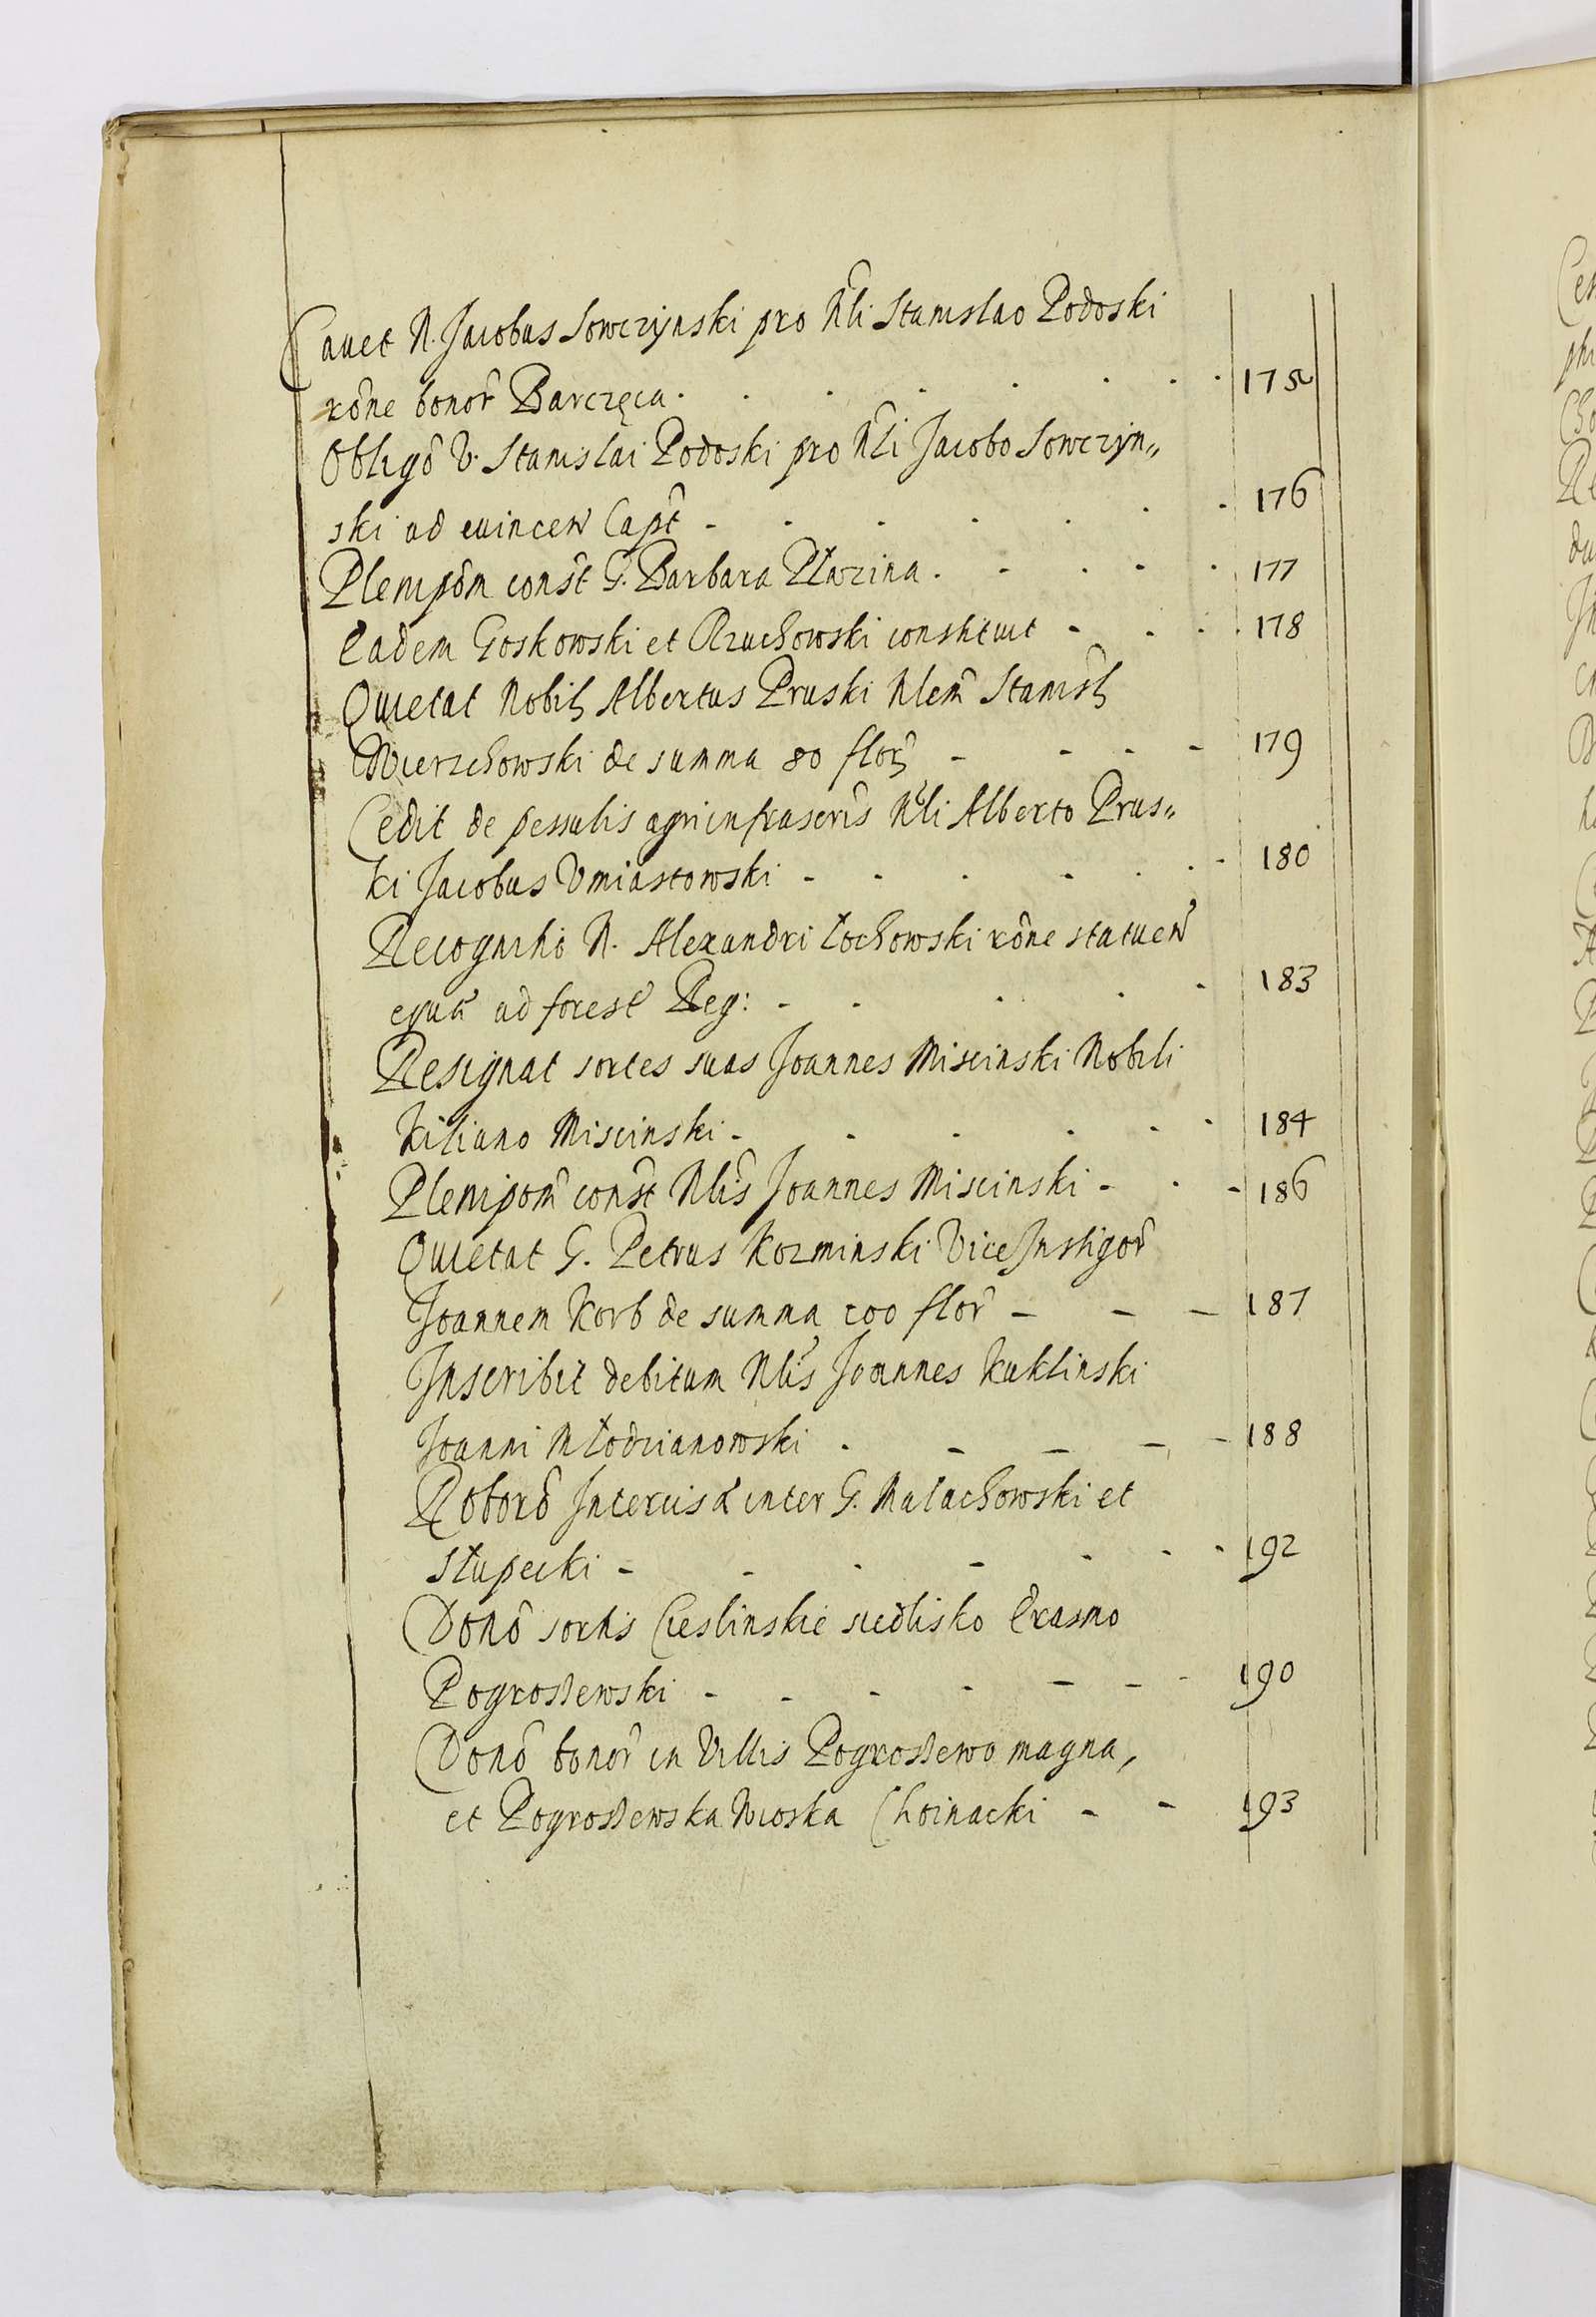 Cavet N. Jacobus Sowczynski pro Nli Stanislao Podoski
rõne bonor Barczęca . . . . . . . 175
Obligõ V. Stanislai Podoski pro Nli Jacobo Sowczyn„
ski ad evincen Capt - - - - - - - 176
Plenipõm const G. Barbara Pławzina . - . - . 177
Eadem Goskowski et Rzuchowski constituit - . . . 178
Quietat Nobil Albertus Pruski Nlem Stanisl
Wierzchowski de summa 80 flor - - - - 179
Cedit de pessulis agri infrascris Nli Alberto Prus„
ki Jacobus Umiastowski - - . - . . - 180
Recognitio N. Alexandri Łochowski rõne statuen
equa ad forest Reg: - - . . - 183
Resignat sortes suas Joannes Miscinski Nobili
Kiliano Miscinski - - - . - . 184
Plenipom const Nlis Joannes Miscinski - . - 186
Quietat G. Petrus Kozminski Vice Instigor
Joannem Korb de summa 200 flor - - - 187
Inscribit debitum Nlis Joannes Kuklinski
Joanni Młodzianowski . - - - - 188
Roborõ Intercis inter G. Małachowski et
Słupecki - - . - - . . 192
Donõ sortis Cieslinskie siedlisko Erasmo
Pogroszewski - - - - - - - 190
Donõ bonor in Villis Pogroszewo magna,
et Pogroszewska Wioska Choinacki - - 193